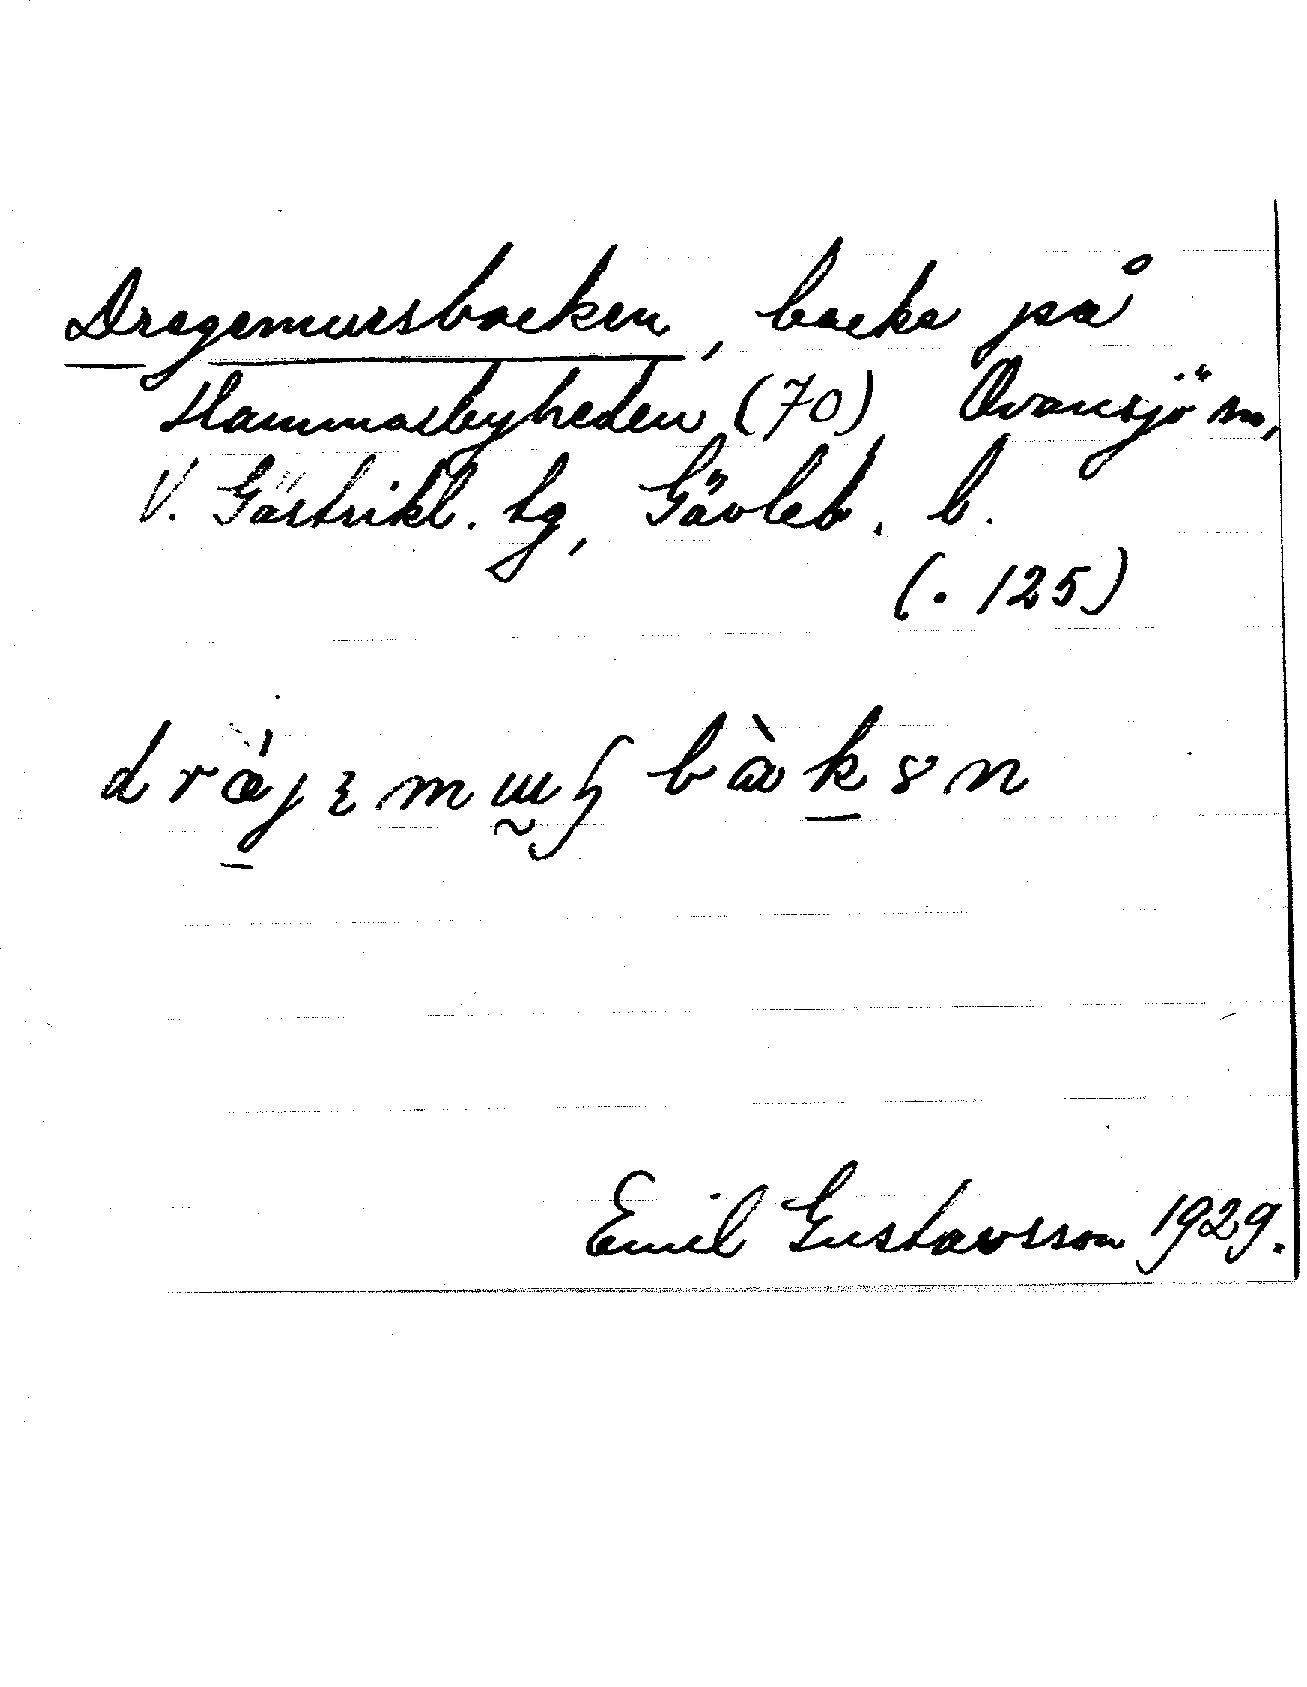 Dragemursbacken, backe på
Hammarbyheden (70) Ovansjö sn,
V. Gästrikl. tg, Gävleb. l.
(. 125)
Emil Gustavsson 1929.